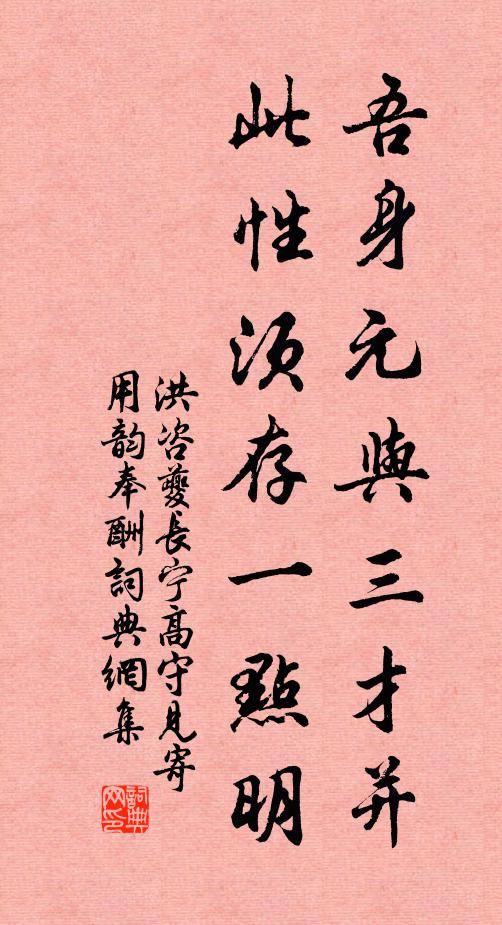 吾身元與三才并
此性須存一點明
洪咨夔長宁高守見寄
用韵奉酬詞典網集
詞典网印